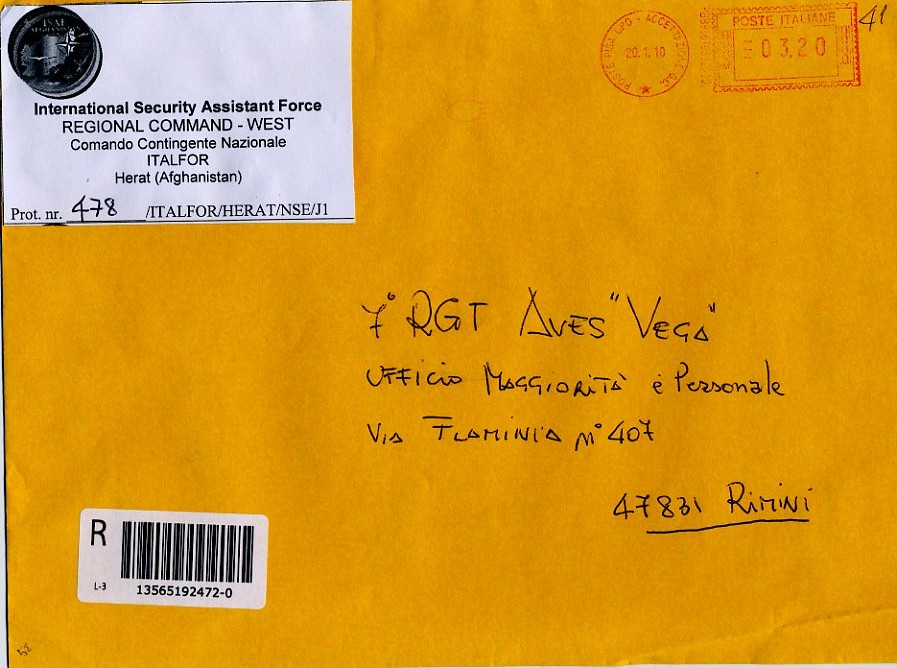 ISAF
AFGHANISTAN
International Security Assistant Force
REGIONAL COMMAND - WEST
Comando Contingente Nazionale
ITALFOR
Herat (Afghanistan)
Prot. nr. 478 /ITALFOR/HERAT/NSE/J1
POSTE PISA CPO - ACCETTAZIONE G.C.
20.1.10
POSTE ITALIANE
03,20
41
7° RGT AVES "VEGA"
UFFICIO MAGGIORITÀ e Personale
VIA FLAMINIA n° 407
47831 RIMINI
R
L-3
13565192472-0
58